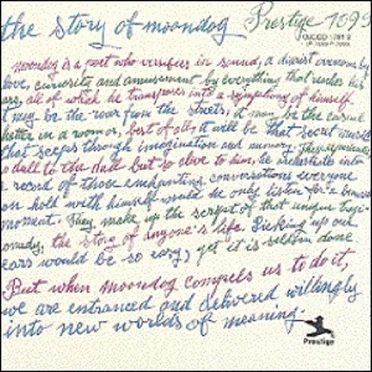 the story of moondog Prestige 1099
OJCCD 1741-2
moondog is a poet who versifies in sound, a diarist overcome by
love, curiosity and amusement by everything that reaches his
ears, all of which he transposes into a symphony of himself.
It may be the roar from the streets, it may be the casual
chatter in a room or, best of all, it will be that secret murmur
that seeps through imagination and memory.
so dull to the dull but so alive to him, he orchestrates into
a record of those enchanting conversations everyone
can hold with himself would he only listen for a
moment. They make up the script of that unique tragi-
comedy, the story of anyone's life. Picking up our
ears would be so easy, yet it is seldom done
But when moondog compels us to do it,
we are entranced and delivered willingly
into new worlds of meaning.
Prestige